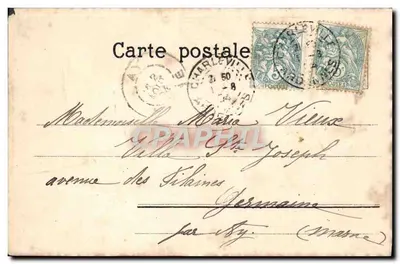 Carte postale
CHARLEVILLE
Mademoiselle Maria Vieux
Villa St Joseph
avenue des Filaines
Germaine
par Ay. (Marne)